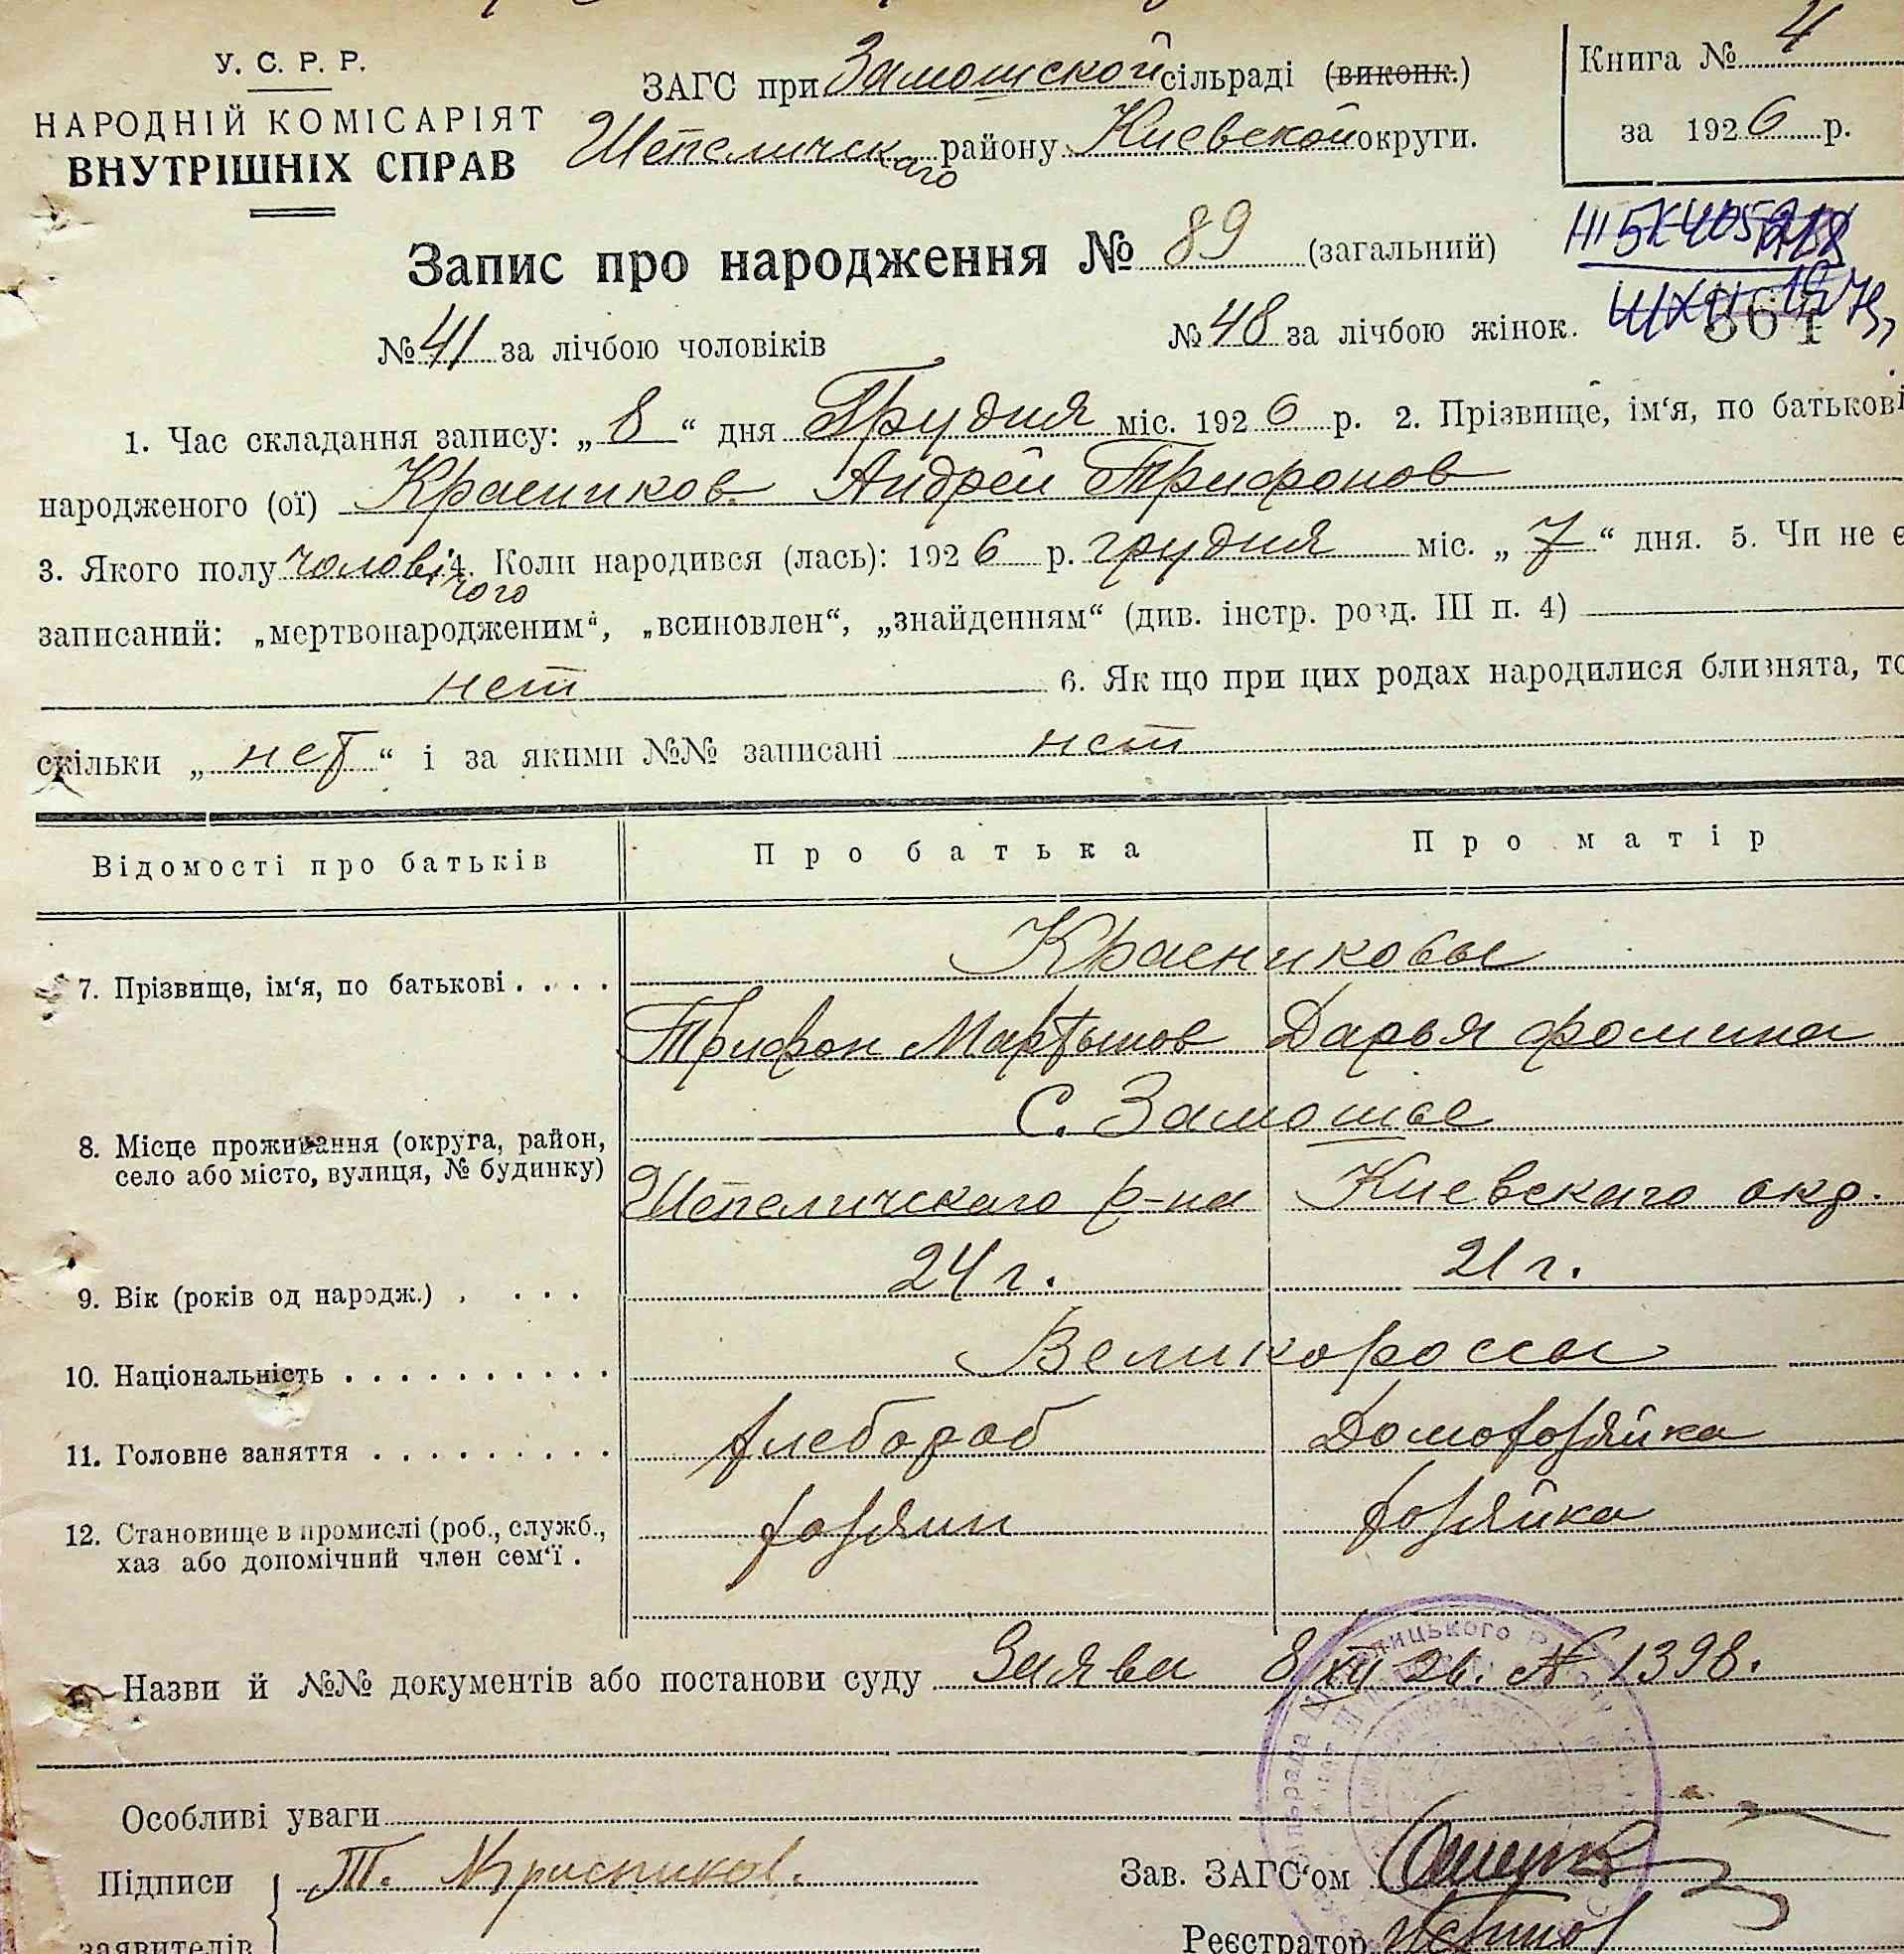 У. С. Р. Р.
НАРОДНІЙ КОМІСАРІЯТ
ВНУТРІШНІХ СПРАВ
ЗАГС при Замошской сільраді (виконк.)
Шепеличскаго району Киевской округи.
Книга № 4
за 1926 р.
Запис про народження № 89 (загальний)
№ 41 за лічбою чоловіків № 48 за лічбою жінок.
1. Час складання запису: „ 8 “ дня Грудня міс. 1926 р. 2. Прізвище, ім‘я, по батькові
народженого (ої) Красников Андрей Трифонов
3. Якого полу чоловічого 4. Коли народився (лась): 1926 р. грудня міс. „ 7 “ дня. 5. Чи не є
записаний: „мертвонародженим“, „всиновлен“, „знайденням“ (див. інстр. розд. III п. 4)
нет 6. Як що при цих родах народилися близнята, то
скільки „ нет “ і за якими №№ записані нет
Відомості про батьків Про батька Про матір
Красниковы
7. Прізвище, ім‘я, по батькові . . . .
Трифон Мартынов Дарья Фомина
С. Замошье
8. Місце проживання (округа, район,
село або місто, вулиця, № будинку)
Шепеличскаго р-на Киевскаго окр.
9. Вік (років од народж.) . . . . 24 г. 21 г.
10. Національність . . . . . . . . . . Великороссы
11. Головне заняття . . . . . . . . . хлебороб Домохозяйка
12. Становище в промислі (роб., служб., хозяин хозяйка
хаз або допомічний член сем‘ї .
Назви й №№ документів або постанови суду Заява 8/XII 26. № 1398.
Особливі уваги
Підписи Т. Красников.
заявителів
Зав. ЗАГС‘ом
Реєстратор